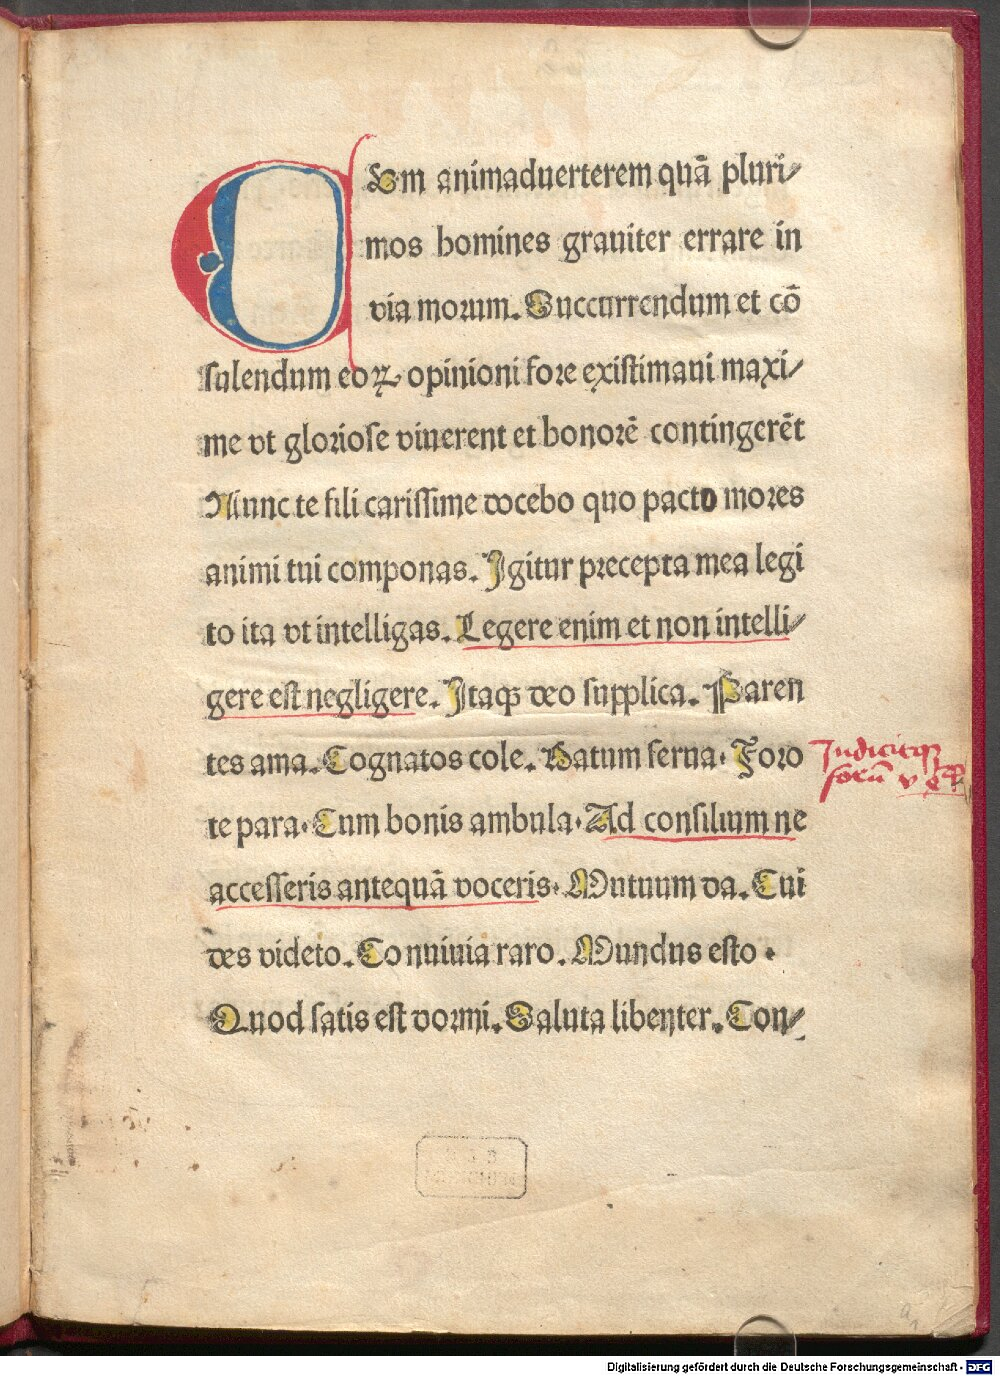 CUm animaduerterem quā pluri⸗
mos homines grauiter errare in
via morum. Succurrendum et cō
sulendum eoꝝ opinioni fore existimaui maxi⸗
me vt gloriose viuerent et honorē contingerēt
Nunc te fili carissime docebo quo pacto mores
animi tui componas. Igitur precepta mea legi
to ita vt intelligas. Legere enim et non intelli⸗
gere est negligere. Itaqꝫ deo supplica. Paren
tes ama. Cognatos cole. Datum serua. Foro
te para. Cum bonis ambula. Ad consilium ne
accesseris antequā voceris. Mutuum da. Cui
des videto. Conuiuia raro. Mundus esto.
Quod satis est dormi. Saluta libenter. Con⸗
Digitalisierung gefördert durch die Deutsche Forschungsgemeinschaft - DFG